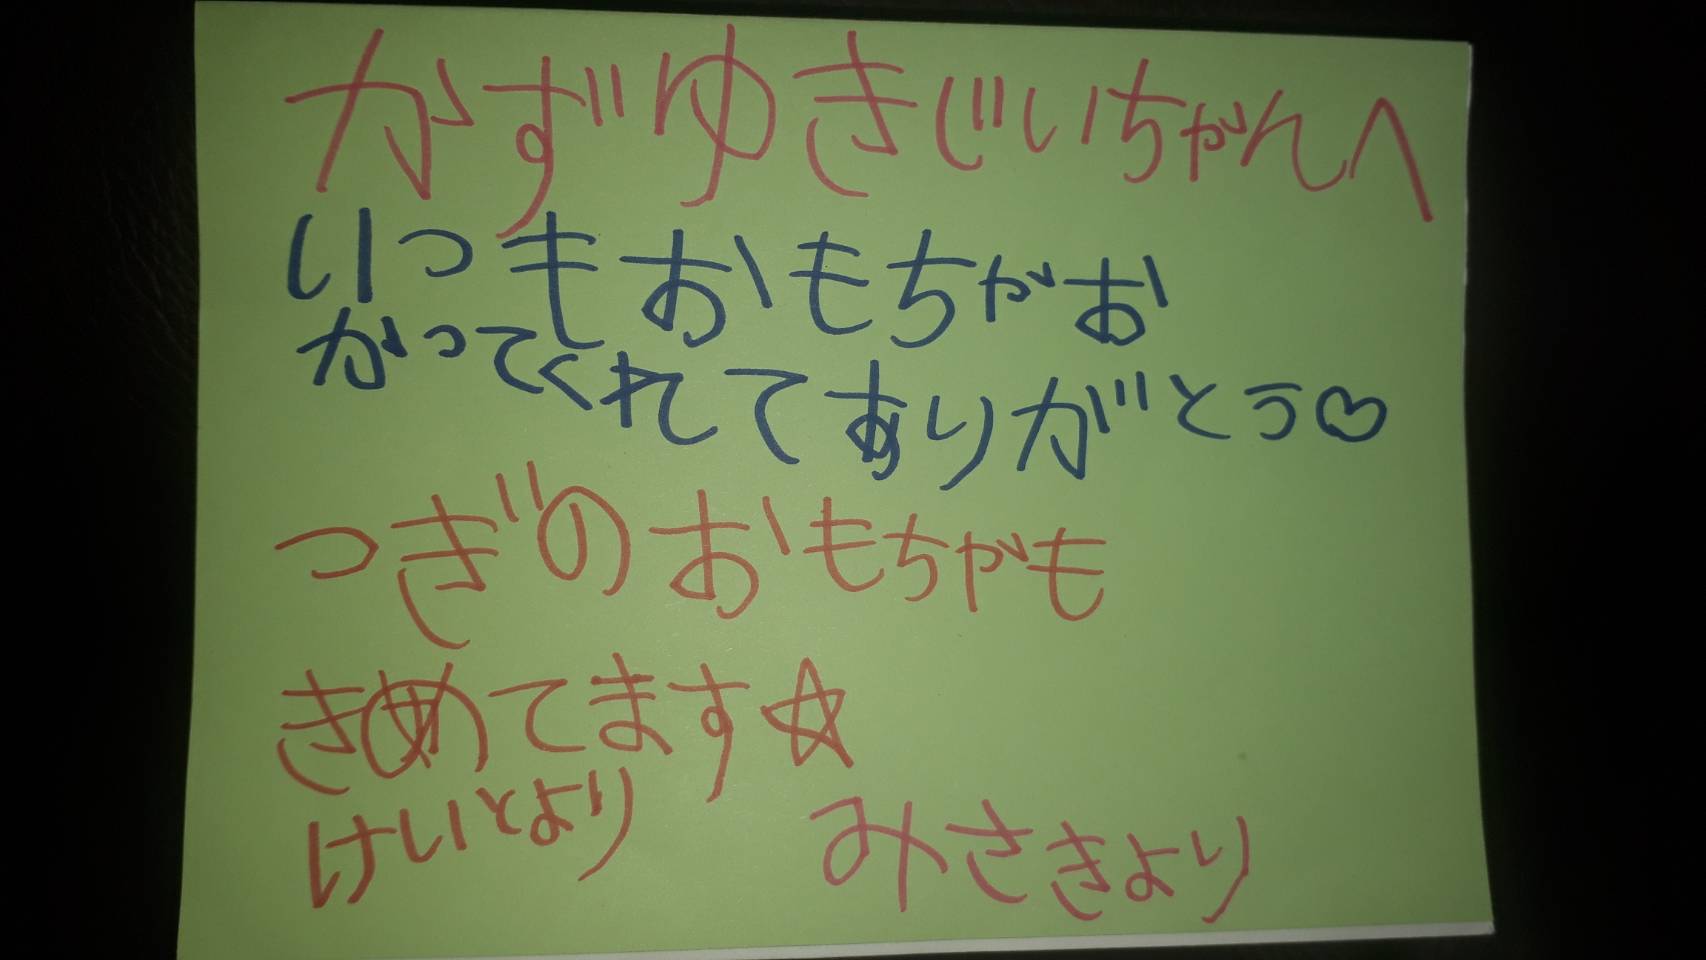 かずゆきじいちゃんへ
いつもおもちゃお
かってくれてありがとう♡
つぎのおもちゃも
きめてます☆
けいとより
みさきより